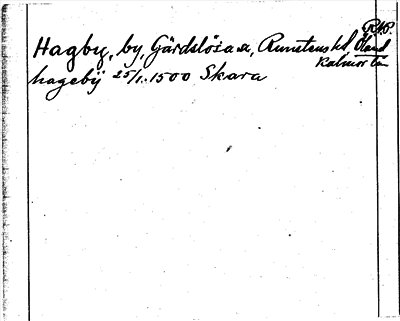 R.A.P.
Hagby, by, Gärdslösa sn, Runstens hd Öland
Kalmar län
hagebÿ 25/1.1500 Skara